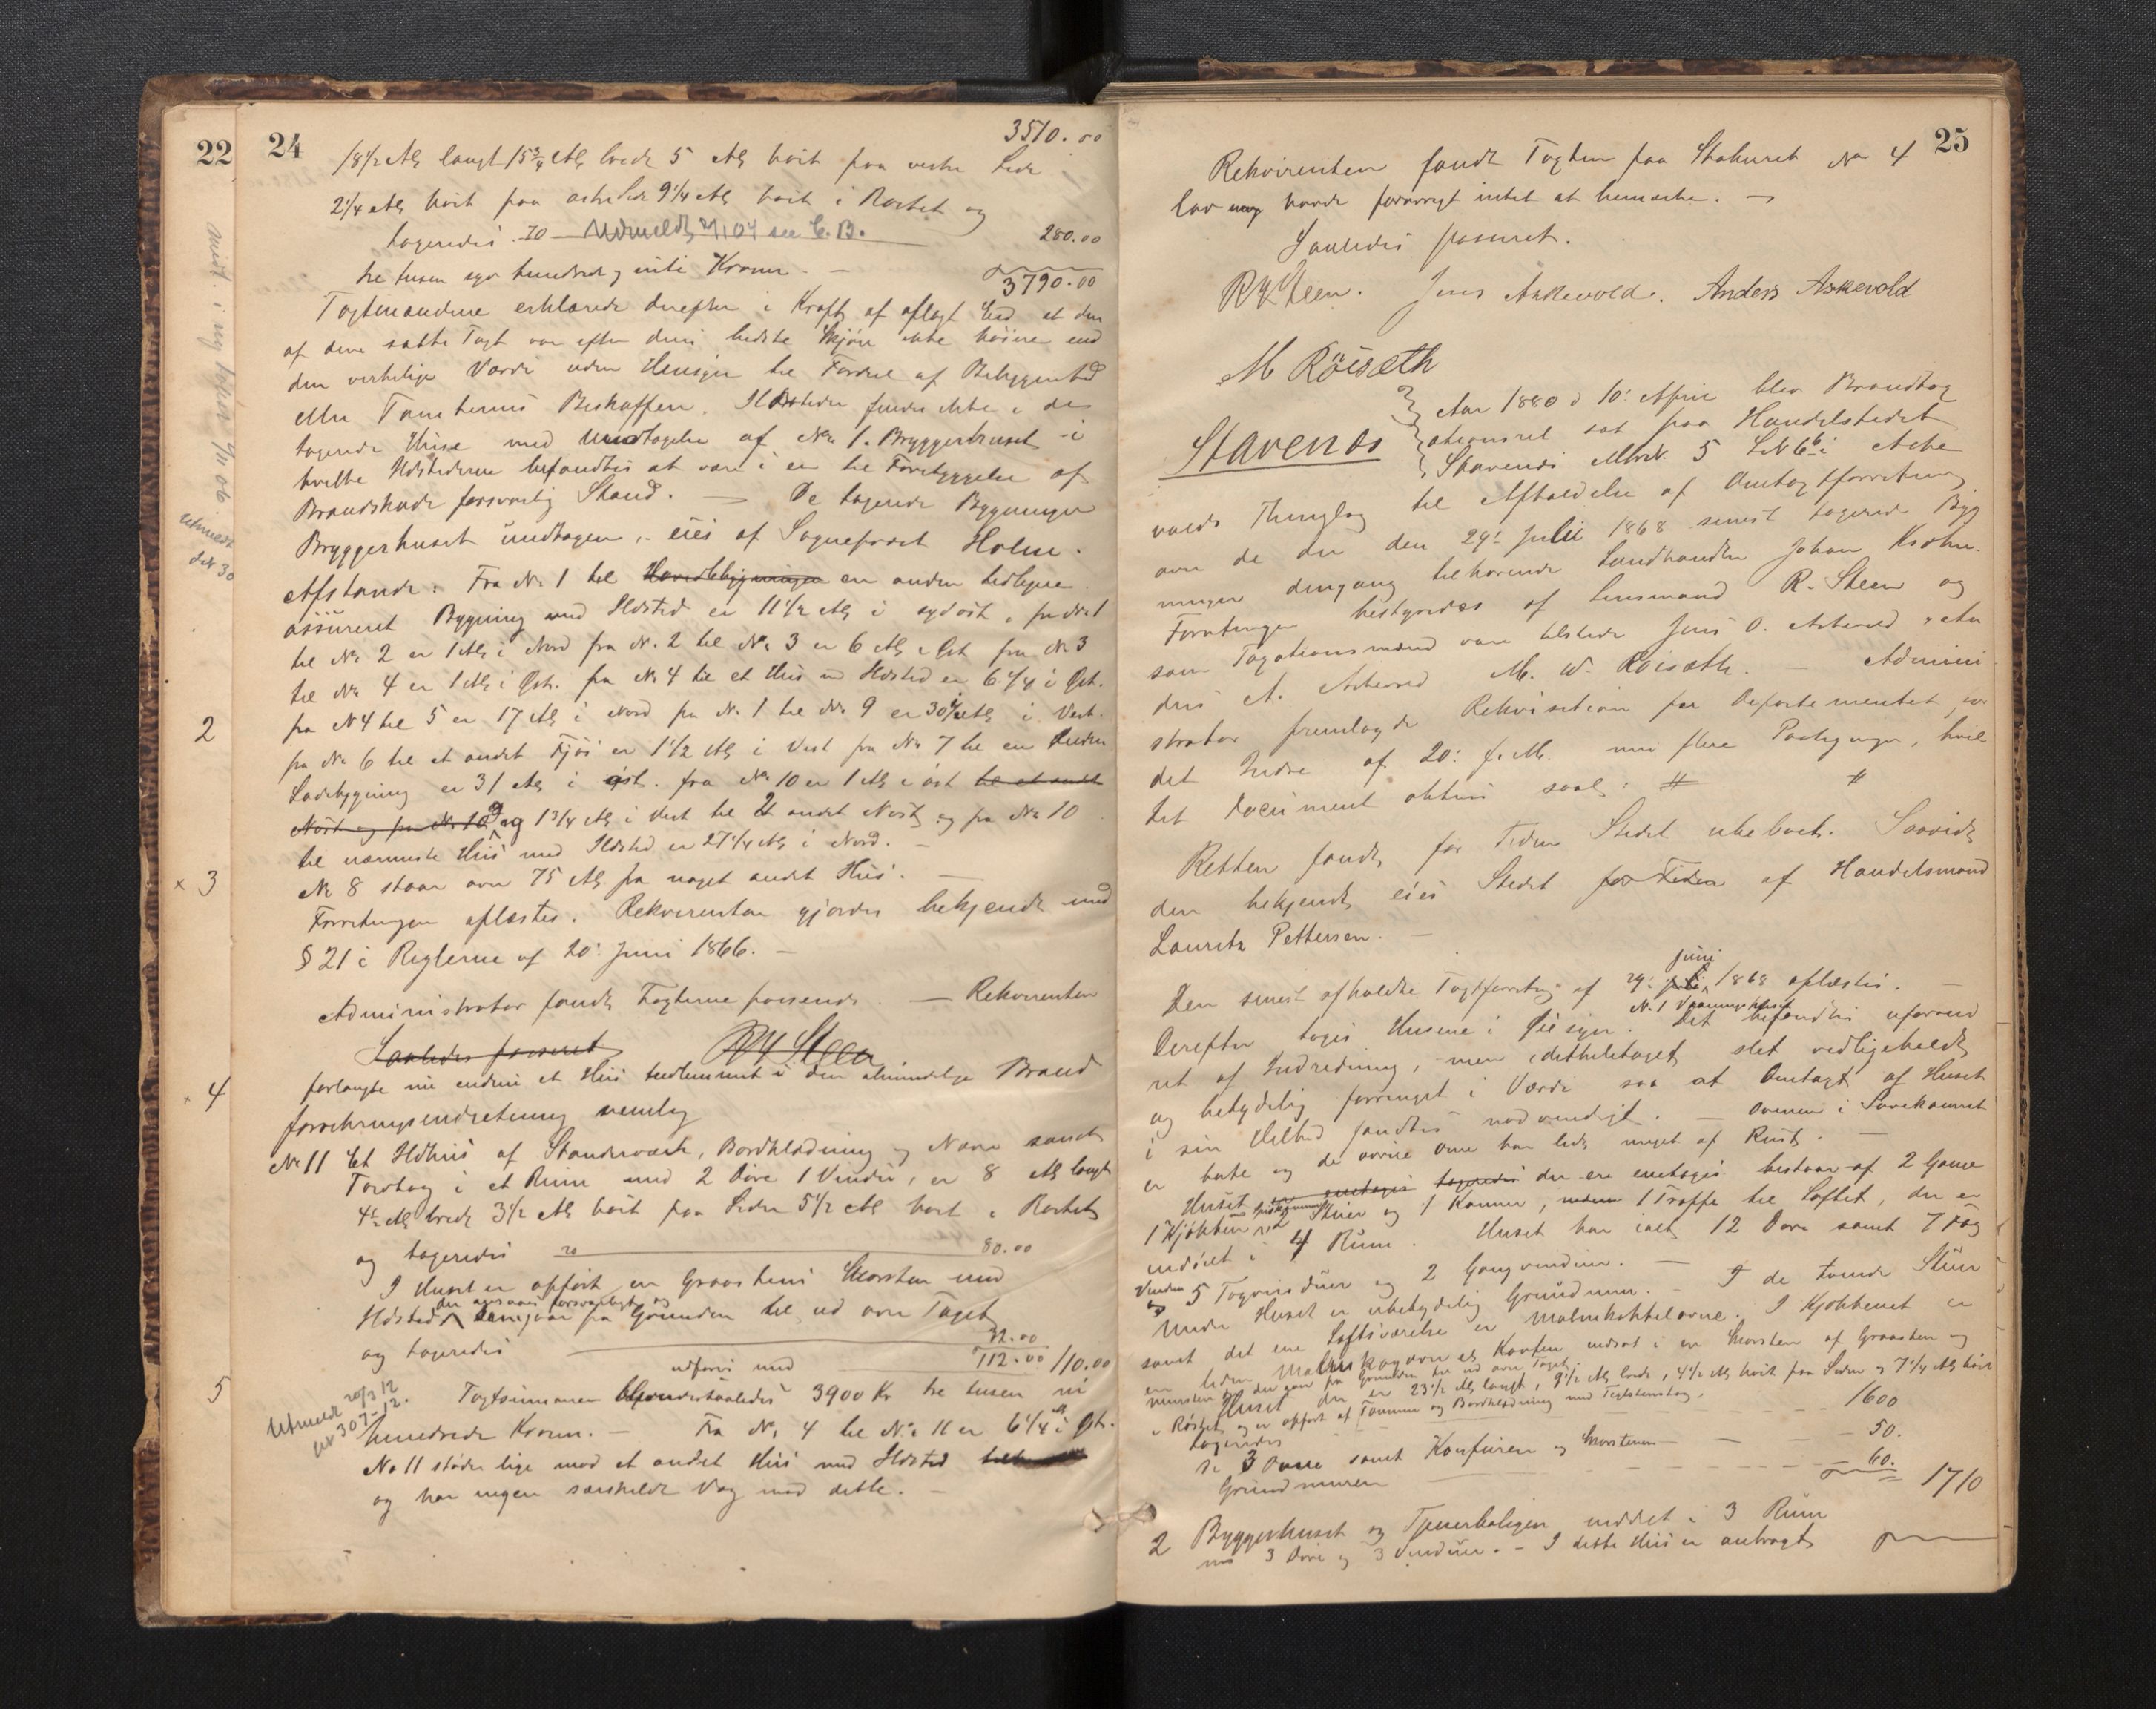 22
24
3510.00
18 1/2 Al langt 15 3/4 Al bredt 5 Al høit paa vestre Side
2 1/4 Al høit paa østre Side 9 1/4 Al høit i Røstet og
tageredes 70 Udmeldt 04 see B.B. 280.00
tre tusen syv hundrede og nitti Kroner. — 3790.00
Taxtmændene erklærede derefter i Kraft af aflagt Eed at den
af dem satte Taxt var efter deres bedste Skjøn ikke høiere end
den virkelige Værdi uden Hensyn til Fordeel af Beliggenhed
eller Tomternes Beskaffen. Ildsteder findes ikke i de
tagerede Huse med Undtagelse af No 1. Bryggerhuset i
hvilke Ildstederne befandtes at være i en til Forebyggelse af
Brandskade forsvarlig Stand. — De tagerede Bygninger
Bryggerhuset undtagen, eies af Sognepræst Holm.
Afstande: Fra No 1 til Hovedbygningen en anden
assureret Bygning med Ildsted er 11 1/2 Al i sydøst, fra No 1
til No 2 er 1 Al i Nord fra No 2 til No 3 er 6 Al i Øst fra No 3
til No 4 er 1 Al i Øst. fra No 4 til et Hus med Ildsted er 6 1/4 i Øst.
fra N 4 til 5 er 17 Al i Nord fra No 1 til No 9 er 30 1/2 Al i Vest.
fra No 6 til et andet Fjøs er 1 1/2 Al i Vest fra No 7 til en anden
Ladebygning er 31 Al i øst. fra No 10 er 1 Al i øst til et andet
Nøst og fra No 10 og 1 3/4 Al i Vest til 2 andet Nøst og fra No 10
til nærmeste Hus med Ildsted er 27 1/4 Al i Nord. —
No 8 staar over 75 Al fra noget andet Hus. —
Forretningen oplæstes. Rekvirenten gjordes bekjendt med
§ 21 i Reglerne af 20: Juni 1866. —
Administrator fandt Taxterne passende. — Rekvirenten
Saaledes passeret RY Steen
forlangte nu endnu et Hus indlemmet i den almindelige Brand
forsikringsindretning nemlig
No 11 Et Ildhus af Standerværk, Bordklædning og Næver samt
Torvtag i et Rum med 2 Døre 1 Vindu, er 8 Al langt
4 1/2 Al bredt 3 1/2 Al høit paa Siden 5 1/2 Al høit i Røstet
og tageredes 20 80.00
I Huset er opført en Graastens Skorsten med
Ildsted, der ansaaes forsvarligt og gaar fra Grunden til ud over Taget
og tageredes 32.00
udføres med 112.00 110.00
Taxtsummen bliver saaledes 3900 Kr tre tusen ni
hundrede Kroner. — Fra No 4 til No 11 er 6 1/4 Al i Øst.
No 11 støder lige mod et andet Hus med Ildsted
og har ingen særskildt Væg mod dette. —
Udmeldt 20/3 12
307-12.
2
x 3
x 4
5
25
Rekvirenten fandt Taxten paa Staburet No 4
lav havde forøvrigt intet at bemærke. —
Saaledes passeret.
RY Steen. Jens Askevold. Anders Askevold
M Röiseth
Stavenæs
Aar 1880 d 10: April blev Brandtax
ationsret sat paa Handelstedet
Stavenæs Matr. 5 LN 6 b i Aske
volds Thinglag til Afholdelse af Omtaxtforretning
over de der den 29: Juli 1868 senest tagerede Byg
ninger dengang tilhørende Landhandler Johan
Forretningen bestyredes af Lensmand R. Steen og
som Taxationsmænd vare tilstede Jens O. Askevold, An
ders A. Askevold M. W. Röiseth. — Admini
strator fremlagde Rekvisition fra Departementet for
det Indre af 20: f. M. med flere Paategninger, hvil
ket Document aktes saal: # #
Retten fandt for Tiden Stedet ubeboet. Saavidt
den bekjendt eies Stedet for Tiden af Handelsmand
Lauritz Pettersen. —
Den senest afholdte Taxtforretning af 29: Juni 1868 oplæstes. —
Derefter toges Husene i Øiesyn. No. 1 Vaaningshuset Det befandtes uforand
ret af Indredning, men idethele taget slet vedligeholdt
og betydelig forringet i Værdi saa at Omtaxt af Huset
i sin Helhed fandtes nødvendigt. — Ovnen i Sovekamret
er borte og de øvrige Ovne har lidt meget af Rust. —
Huset der er enetages bestaar af 2 Gange
1 Kjøkken 2 Stuer og 1 Kammer, 1 Trappe til Loftet, der er
inddelt i 4 Rum. Huset har ialt 12 Døre samt 7 Fag
Vinduer og 5 Tagvinduer og 2 Gangvinduer. —
Under Huset er ubetydelig Grundmur. — I de tvende Stuer
samt det ene Loftsværelse er Malmkakkelovne. I Kjøkkenet er
en liden og Komfur indsat i en Skorsten af Graasten og
mursten, der gaar fra Grunden til ud over Taget.
Huset der er 23 1/2 Al langt, 9 1/2 Al bredt, 4 1/2 Al høit paa Siden og 7 1/4 Al høit
i Røstet, og er opført af Tømmer og Bordklædning med Teglstenstag,
tageredes 1600
De 3 Ovne samt Komfuren og Skorstenen — 50.
Grundmuren — 60.
1710
2 Bryggerhuset og Tjenerboligen inddelt i 3 Rum
med 3 Døre og 3 Vinduer. — I dette Hus er anbragt